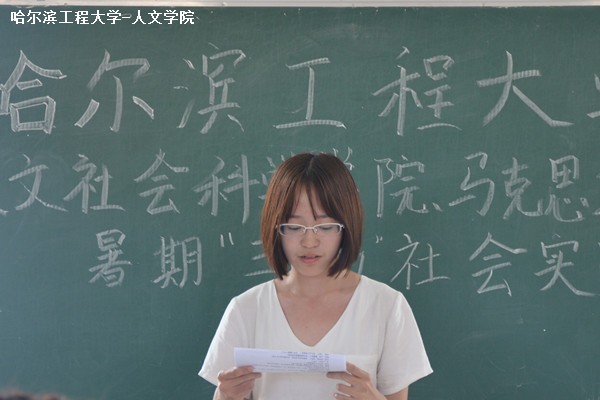 哈尔滨工程大学-人文学院
哈尔滨工程大
文社会科学学院、马克思
暑期"三 "社会实